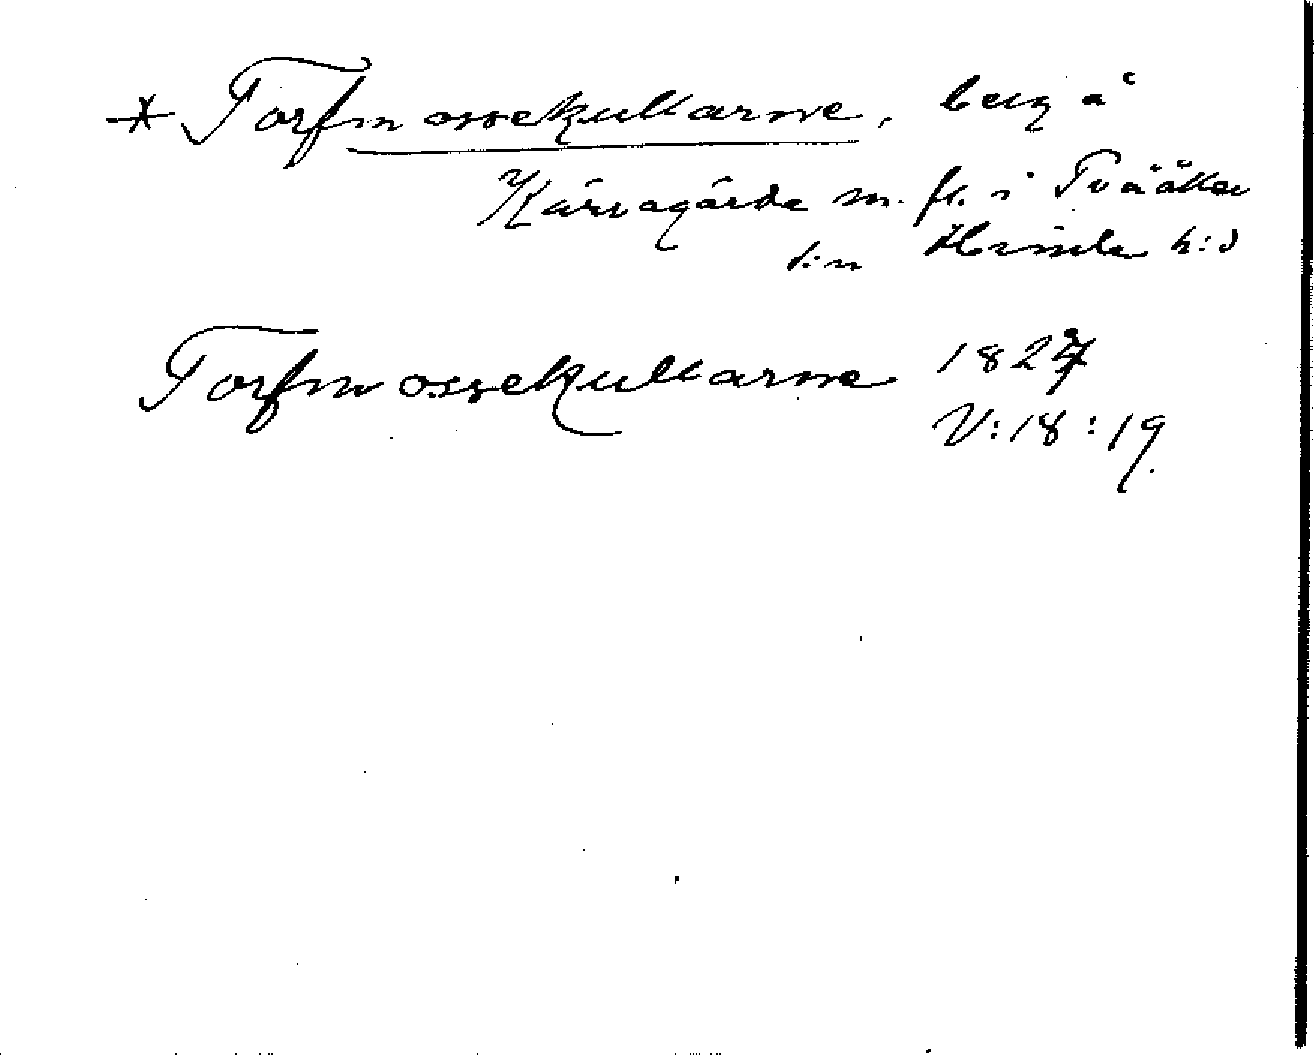 * Torfmossekullarne, berg å
Kärragärde m. fl. i Tvååker
s:n Himle h:d
Torfmossekullarne 1827
V:18:19.